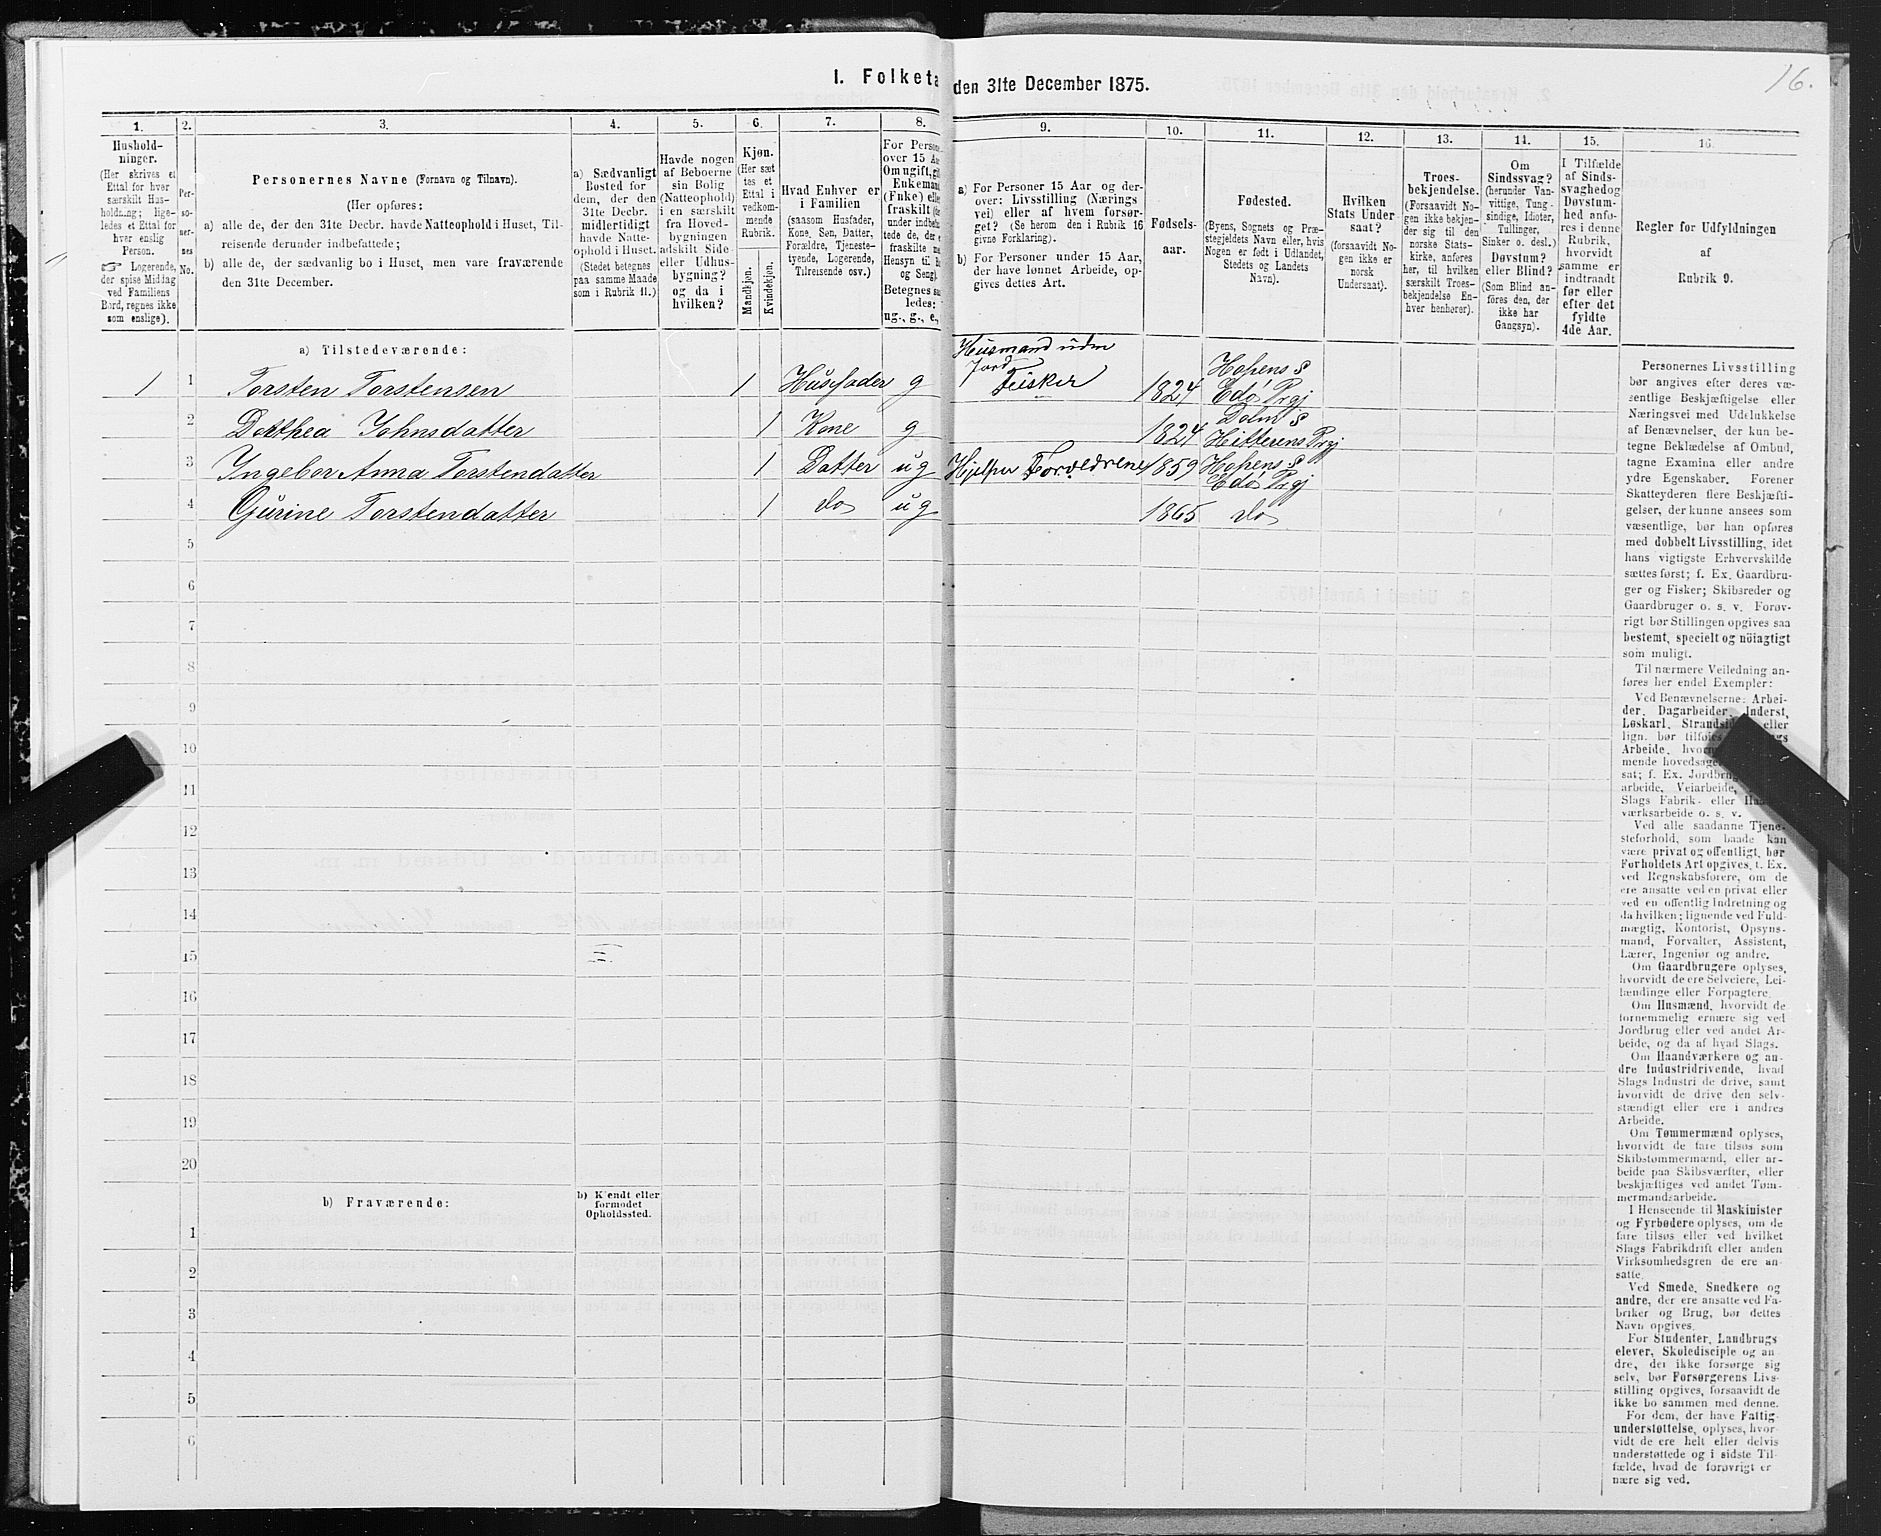 I. Folketa den 31te December 1875.
16.
1.
Hushold-
ninger.
(Her skrives et
Ettal for hver
særskilt Hus-
holdning; lige-
ledes et Ettal for
hver enslig
Person.
Logerende,
der spise Middag
ved Familiens
Bord, regnes ikke
som enslige).
2.
Per-
so-
ner-
nes
No.
3.
Personernes Navne (Fornavn og Tilnavn).
(Her opføres:
a) alle de, der den 31te Decbr. havde Natteophold i Huset, Til-
reisende derunder indbefattede;
b) alle de, der sædvanlig bo i Huset, men vare fraværende
den 31te December.
4.
a) Sædvanligt
Bosted for
dem, der den
31te Decbr.
midlertidigt
havde Natte-
ophold i Huset.
(Stedet betegnes
paa samme Maade
som i Rubrik 11.)
5.
Havde nogen
af Beboerne
sin Bolig
(Natteophold)
i en særskilt
fra Hoved-
bygningen
adskilt Side-
eller Udhus-
bygning?
og da i
hvilken?
6.
Kjøn.
(Her sæt
tes et
Ettal i
vedkom-
mende
Rubrik.
Mandkjøn.
Kvindekjøn.
7.
Hvad Enhver er
i Familien
(saasom Husfader,
Kone, Søn, Datter,
Forældre, Tjeneste-
tyende, Logerende,
Tilreisende osv.)
8.
For Perso
over 15 Aa
Om ugift, gif
Enkemand
(Enke) elle
fraskilt
under indbefat
tede de, der
fraskilte
Hensyn til Bo
og Seng).
Betegnes saa
ledes:
ug., g., e.,
9.
a) For Personer 15 Aar og der-
over: Livsstilling (Nærings
vei) eller af hvem forsør-
get? (Se herom den i Rubrik 16
givne Forklaring).
b) For Personer under 15 Aar,
der have lønnet Arbeide, op-
gives dettes Art.
10.
Fødsels-
aar.
11.
Fødested.
(Byens, Sognets og Præ-
stegjeldets Navn eller, hvis
Nogen er født i Udlandet,
Stedets og Landets
Navn).
12.
Hvilken
Stats Under-
saat?
(forsaavidt No-
gen ikke er
norsk
Undersaat).
13.
Troes-
bekjendelse.
(Forsaavidt No-
gen ikke bekjen-
der sig til den
norske Stats-
kirke, anføres
her, til hvilken
særskilt Troes-
bekjendelse En-
hver henhører).
14.
Om
Sindssvag?
(herunder Van-
vittige, Tung-
sindige, Idioter,
Tullinger,
Sinker o. desl.)
Døvstum?
eller Blind?
(Som Blind an-
føres den, der
ikke har
Gangsyn).
15.
I Tilfælde
af Sinds-
svaghedog
Døvstum-
hed anfø-
res i denne
Rubrik,
hvorvidt
samme er
indtraadt
før eller
efter det
fyldte
4de Aar.
16.
Regler for Udfyldningen
af
Rubrik 9.
a) Tilstedeværende:
1 1 Torsten Torstensen 1 Husfader g Husmand uden Jord Feisker 1824 Hopens S Edø Prgj
2 Dorthea Johnsdatter 1 Kone g 1824 Dolm S Hitterens Prgj
3 Ingebor Anna Torstendatter 1 Datter ug Hjelper Forældrene 1859 Hopens S Edø Prgj
4 Gjurine Torstendatter 1 do ug 1865 do
5
6
7
8
9
10
11
12
13
14
15
16
17
18
19
20
b) Fraværende:
b) Kjendt eller
formodet
Opholdssted.
1
2
3
4
5
6
Personernes Livsstilling
bør angives efter deres væ-
sentlige Beskjæftigelse eller
Næringsvei med Udelukkelse
af Benævnelser, der kun be-
tegne Beklædelse af Ombud,
tagne Examina eller andre
ydre Egenskaber. Forener
Skatteyderen flere Beskjæfti-
gelser, der kunne ansees som
væsentlige, bør han opføres
med dobbelt Livsstilling, idet
hans vigtigste Erhvervskilde
sættes først; f. Ex. Gaardbru-
ger og Fisker; Skibsreder og
Gaardbruger o. s. v. Forøv-
rigt bør Stillingen opgives saa
bestemt, specielt og nöiagtigt
som muligt.
Til nærmere Veiledning an-
føres her endel Exempler:
Ved Benævnelserne: Arbei-
der, Dagarbeider, Inderst,
Løskarl, Strandsid eller
lign. bør tilføies
Arbeide, hvor
mende hovedsage
sat; f. Ex. Jordbrug
arbeide, Veiarbeide,
Slags Fabrik- eller
værksarbeide o. s. v.
Ved alle saadanne Tjene-
steforhold, som baade kan
være privat og offentligt, bør
Forholdets Art opgives, t. Ex.
ved Regnskabsførere, om de
ere ansatte ved en privat eller
ved en offentlig Indretning og
da hvilken; lignende ved Fuld-
mægtig, Kontorist, Opsyns-
mand, Forvalter, Assistent,
Lærer, Ingeniør og andre.
Om Gaardbrugere oplyses,
hvorvidt de ere Selveiere, Lei-
lændinge eller Forpagtere.
Om Husmænd, hvorvidt de
fornemmelig ernære sig ved
Jordbrug eller ved andet Ar-
beide, og da af hvad Slags.
Om Haandværkere og an-
dre Industridrivende, hvad
Slags Industri de drive, samt
hvorvidt de drive den selv-
stændigt eller ere i andres
Arbeide.
Om Tømmermænd oplyses,
hvorvidt de fare tilsøs som
Skibstømmermænd, eller ar-
beide paa Skibsværfter, eller
beskjæftiges ved andet Tøm-
mermandsarbeide.
I Henseende til Maskinister
og Fyrbødere oplyses, om de
fare tilsøs eller ved hvilket
Slags Fabrikdrift eller anden
Virksomhedsgren de ere an-
satte.
Ved Smede, Snedkere og
andre, der ere ansatte ved Fa-
briker og Brug, bør dettes
Navn opgives.
For Studenter, Landbrugs
elever, Skoledisciple og an-
dre, der ikke forsørge sig
selv, bør Forsørgerens Livs-
stilling opgives, forsaavidt de
ikke bo sammen med denne.
For dem, der have Fattig-
understøttelse, oplyses, hvor-
vidt de ere helt eller delvis
understøttede og i sidste Til-
fælde, hvad de forøvrigt er
nære sig ved.